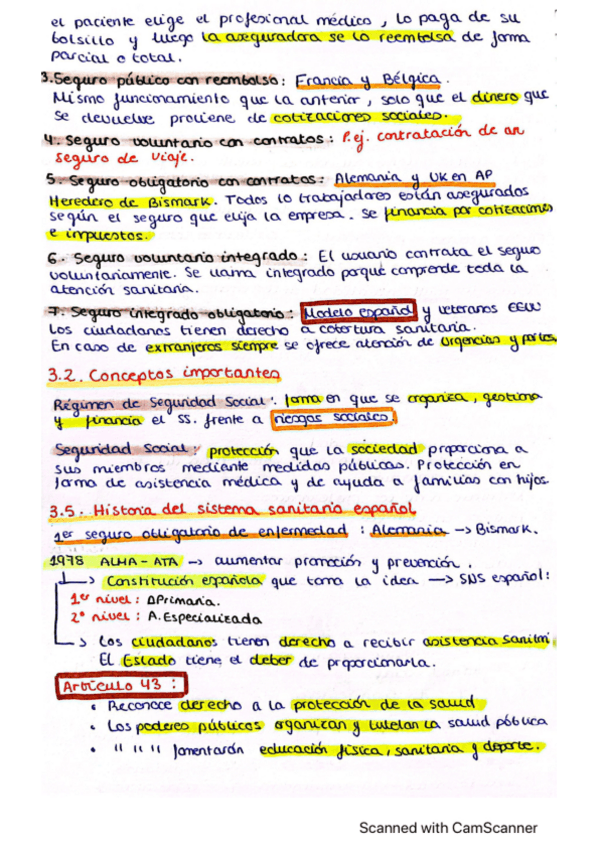 el paciente elige el profesional médico, lo paga de su
bolsillo y luego la aseguradora se lo reembolsa de forma
parcial o total.
3. Seguro público con reembolso: Francia y Bélgica.
Mismo funcionamiento que la anterior, solo que el dinero que
se devuelve proviene de cotizaciones sociales.
4. Seguro voluntario con contratos: P.ej. contratación de un
seguro de viaje.
5. Seguro obligatorio con contratos: Alemania y UK en AP
Heredero de Bismark. Todos lo trabajadores están asegurados
según el seguro que elija la empresa. Se financia por cotizaciones
e impuestos.
6. Seguro voluntario integrado: El usuario contrata el seguro
voluntariamente. Se llama integrado porque comprende toda la
atención sanitaria.
7. Seguro integrado obligatorio: Modelo español y veteranos EEUU
Los ciudadanos tienen derecho a cobertura sanitaria.
En caso de extranjeros siempre se ofrece atención de urgencias y partos
3.2. Conceptos importantes
Régimen de Seguridad Social: forma en que se organiza, gestiona
y financia el SS. frente a riesgos sociales.
Seguridad Social: protección que la sociedad proporciona a
sus miembros mediante medidas públicas. Protección en
forma de asistencia médica y de ayuda a familias con hijos.
3.5. Historia del sistema sanitario español
1er seguro obligatorio de enfermedad: Alemania → Bismark.
1978 ALMA-ATA → aumentar promoción y prevención.
↳ Constitución española que toma la idea → SNS español:
1er nivel: A Primaria.
2º nivel: A. Especializada
↳ Los ciudadanos tienen derecho a recibir asistencia sanitri
El Estado tiene el deber de proporcionarla.
Artículo 43:
• Reconoce derecho a la protección de la salud
• Los poderes públicos organizan y tutelan la salud pública
• " " " fomentarán educación física, sanitaria y deporte.
Scanned with CamScanner